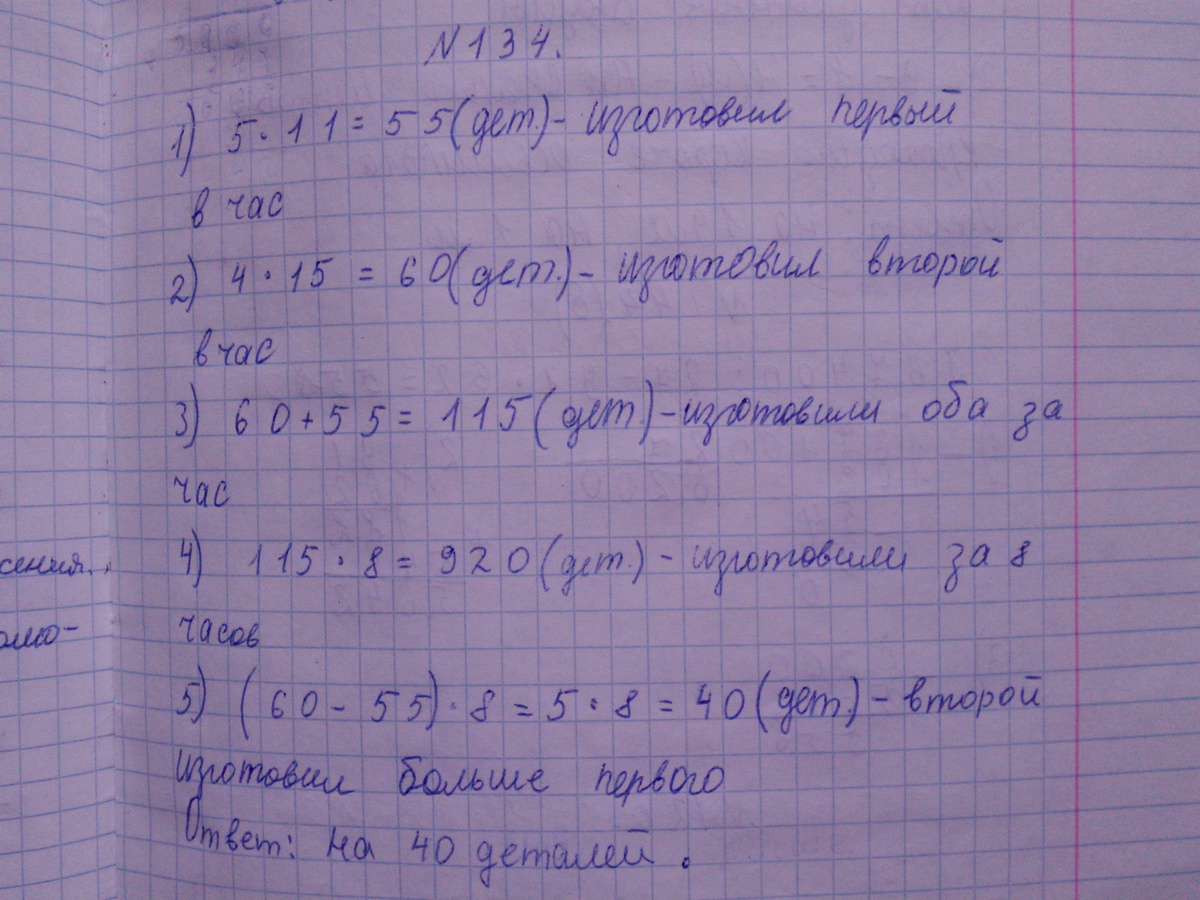 N 134.
1) 5·11=55(дет)- изготовил первый
в час
2) 4·15=60(дет.)- изготовил второй
в час
3) 60+55=115(дет)-изготовили оба за
час
4) 115·8=920(дет.)- изготовили за 8
сения.
часов
олио-
5) (60-55)·8=5·8=40(дет.)- второй
изготовил больше первого
Ответ: на 40 деталей.